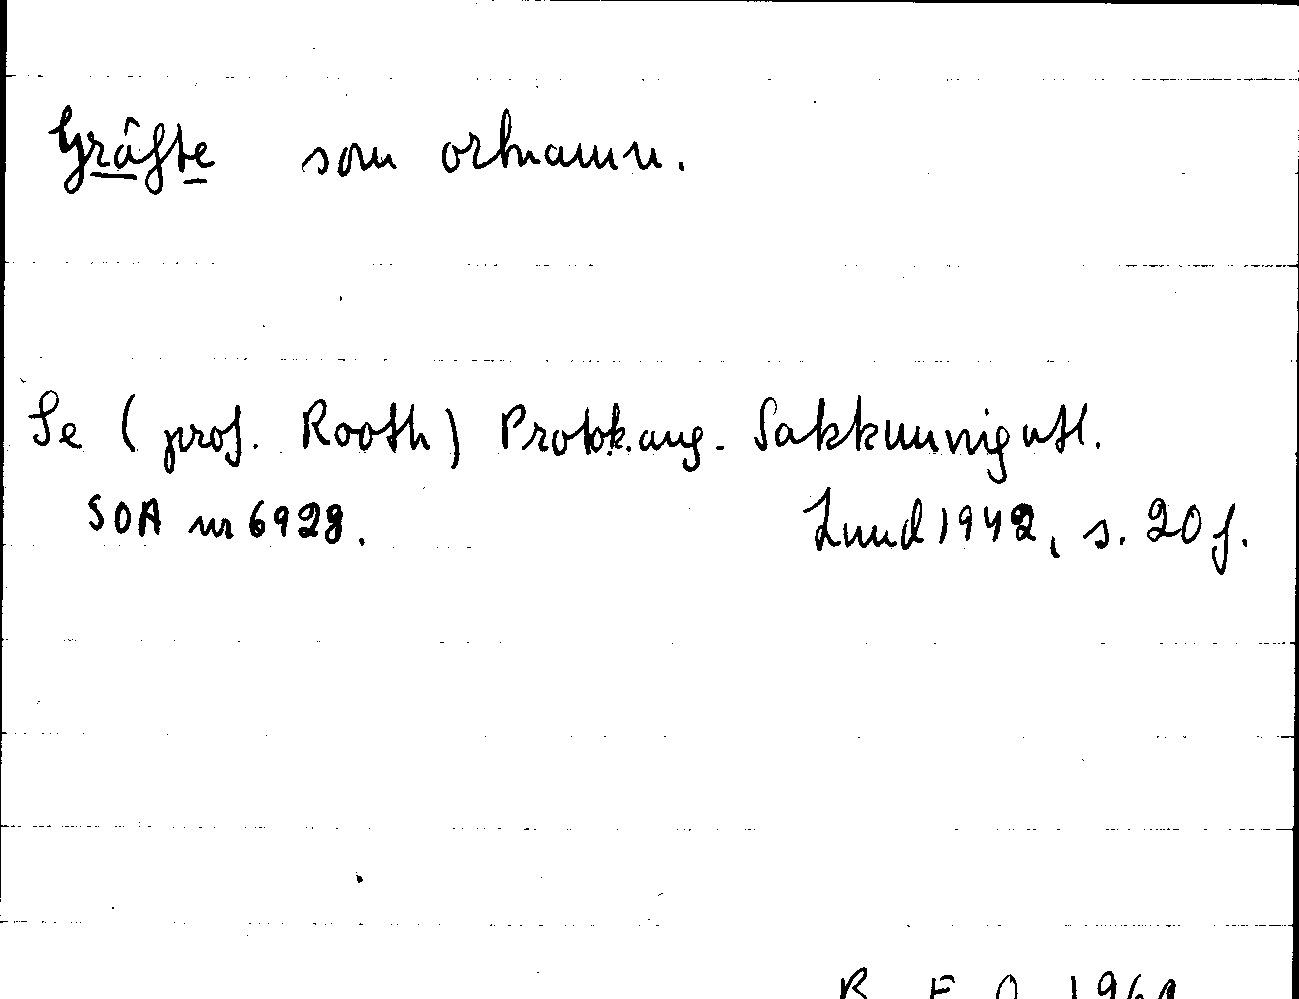 Gräfte som ortnamn.
Se (prof. Rooth) Protok. ang. Sakkunnigutl.
SOA nr 6928. Lund 1942, s. 20 f.
R. E. O. 196